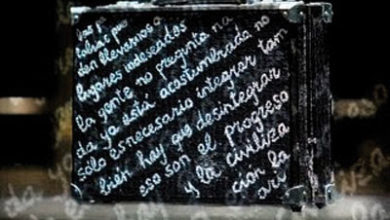 den llevarnos a
lugares indeseados
la gente no pregunta na
da ya está acostumbrada no
sólo es necesario integrar tam
bien hay que desintegrar
eso son el progreso
y la civiliza
ción la